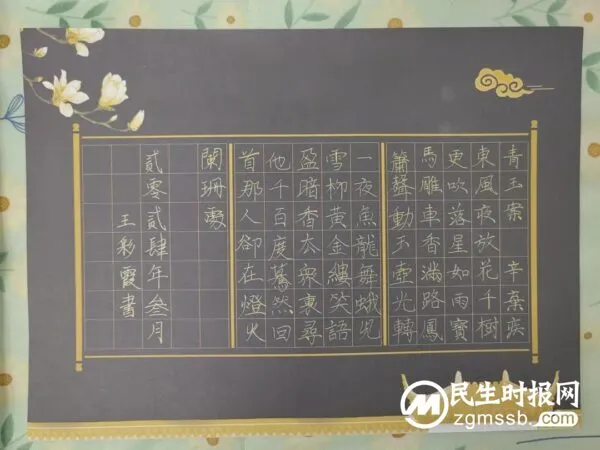 青玉案 辛棄疾
東風夜放花千樹
更吹落星如雨寶
馬雕車香滿路鳳
簫聲動玉壺光轉
一夜魚龍舞蛾兒
雪柳黃金縷笑語
盈暗香去衆裏尋
他千百度驀然回
首那人卻在燈火
闌珊處
貳零貳肆年叁月
王彩霞書
民生时报网
zgmssb.com